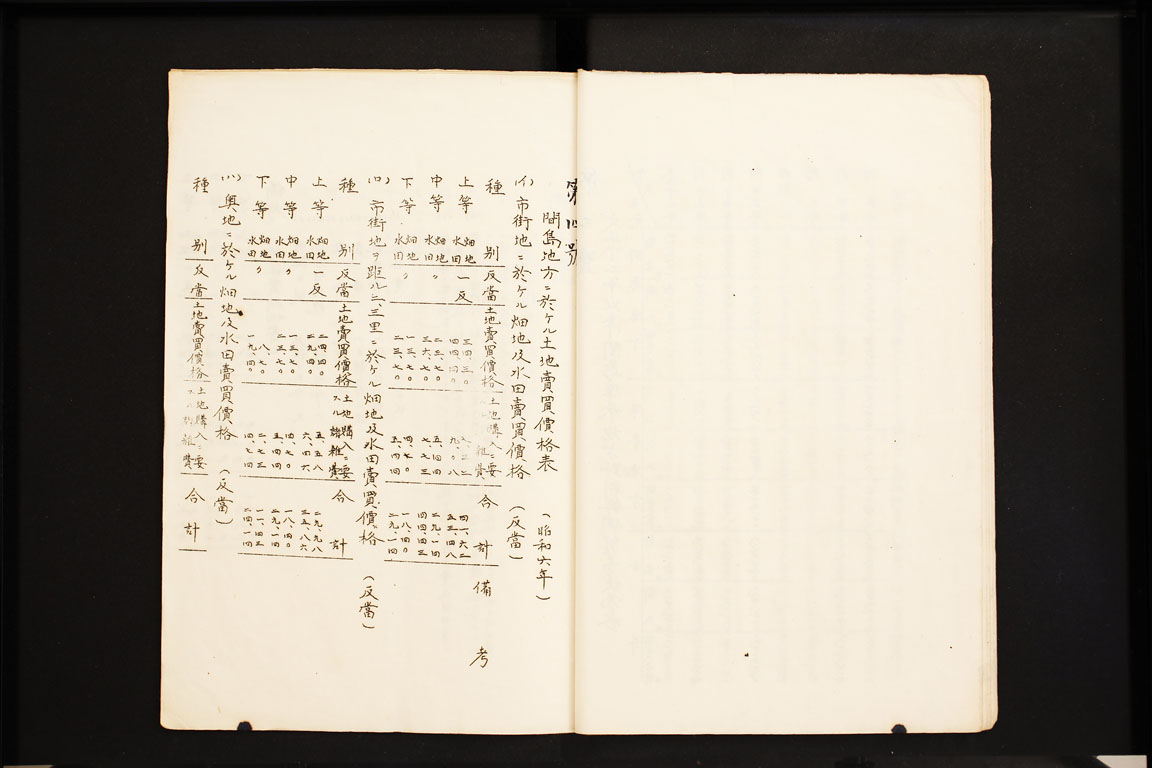 第四號
間島地方ニ於ケル土地賣買價格表 (昭和六年)
(イ) 市街地ニ於ケル畑地及水田賣買價格 (反當)
種別 反當 土地賣買價格 土地購入ニ要 雜費 合計 備考
上等 畑地 一反 三四、三〇 四一、六二
水田 四四、四〇 九、〇八 五三、四八
中等 畑地 〃 二三、七〇 五、四四 二九、一四
水田 三六、七〇 七、七三 四四、四三
下等 畑地 〃 一三、七〇 四、七〇 一八、四〇
水田 二三、七〇 五、四四 二九、一四
(ロ) 市街地ヲ距ル二、三里ニ於ケル畑地及水田賣買價格 (反當)
種別 反當 土地賣買價格 土地購入ニ要スル諸雜費 合計
上等 畑地 一反 二四、四〇 五、五八 二九、九八
水田 二九、四〇 六、四六 三五、八六
中等 畑地 〃 一三、七〇 四、七〇 一八、四〇
水田 二三、七〇 五、四四 二九、一四
下等 畑地 〃 八、七〇 二、七三 一一、四三
水田 一九、四〇 四、七四 二四、一四
(ハ) 奥地ニ於ケル畑地及水田賣買價格 (反當)
種別 反當 土地賣買價格 土地購入ニ要スル諸雜費 合計